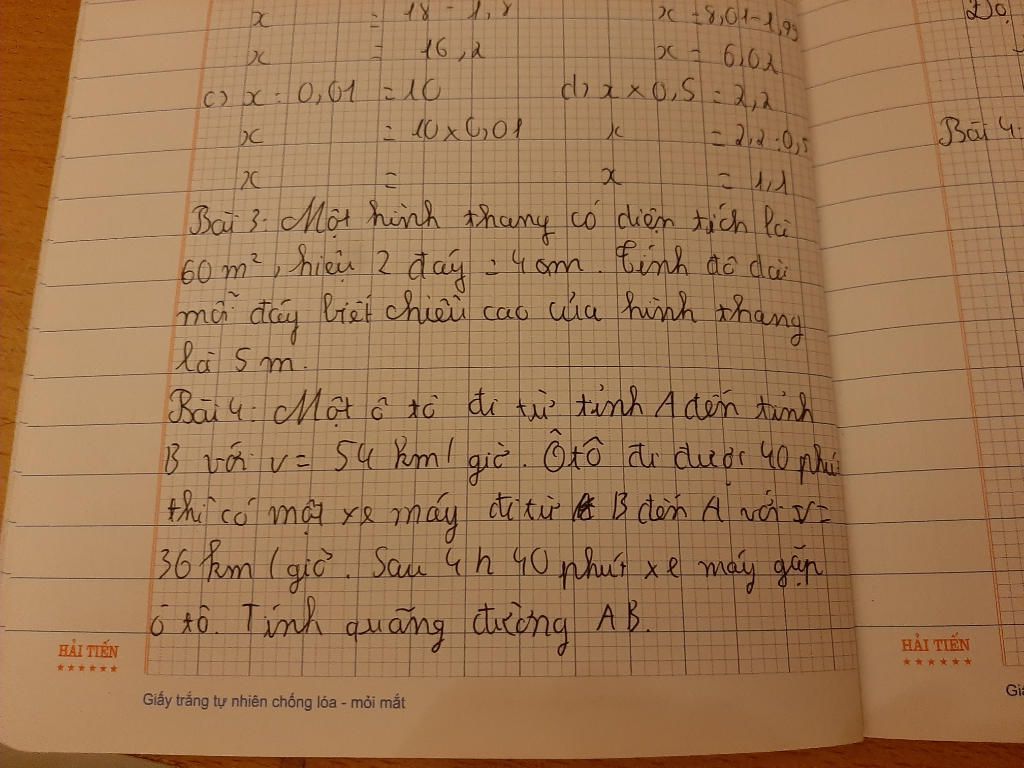 x = 18 - 1,8 x = 8,01 - 1,99
x = 16,2 x = 6,02
c) x : 0,01 = 10 d) x × 0,5 = 2,2
x = 10 × 0,01 x = 2,2 : 0,5
x = x = 1,1
Bài 3: Một hình thang có diện tích là
60 m², hiệu 2 đáy = 4 m. Tính độ dài
mỗi đáy biết chiều cao của hình thang
là 5 m.
Bài 4: Một ô tô đi từ tỉnh A đến tỉnh
B với v = 54 km/giờ. Ô tô đi được 40 phú
thì có một xe máy đi từ B đến A với v =
36 km/giờ. Sau 4 h 40 phút xe máy gặp
ô tô. Tính quãng đường AB.
HẢI TIẾN
Giấy trắng tự nhiên chống lóa - mỏi mắt
Bài 4:
HẢI TIẾN
Gi